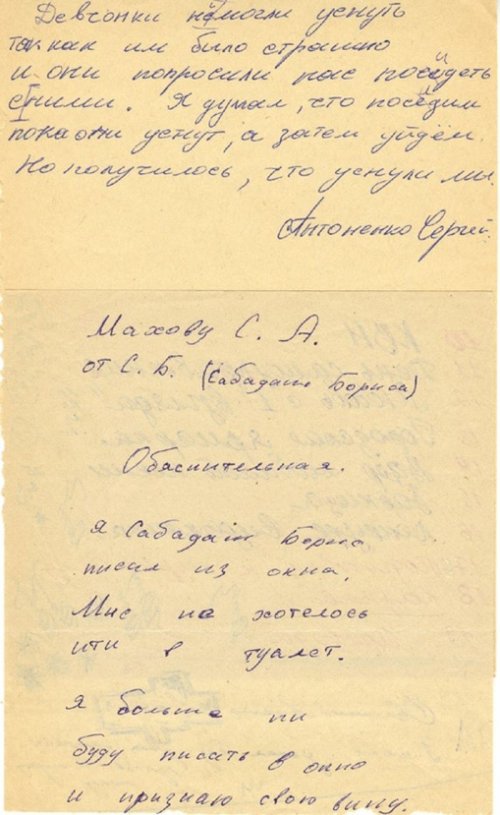 Девчонки немогли уснуть
так как им было страшно
и они попросили нас посидеть
сними. Я думал, что посидим
пока они уснут, а затем уйдём.
Но получилось, что уснули мы.
Антоненко Сергей
Махову С. А.
от С. Б. (Сабадаш Бориса)
Обаснительная.
я Сабадаш Борис
писил из окна.
Мне не хотелось
ити в туалет.
я больше ни
буду писать в окно
и признаю свою вину.